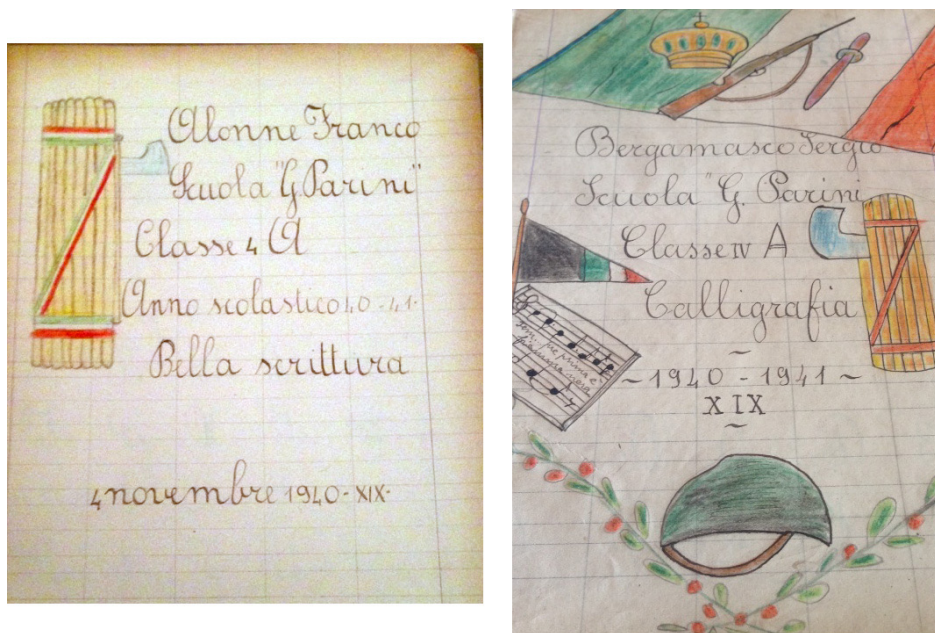 Alonne Franco
Scuola "G. Parini"
Classe 4 A
Anno scolastico 40-41-
Bella scrittura
4 novembre 1940-XIX-
Bergamasco Sergio
Scuola "G. Parini
Classe IV A
Calligrafia
~ 1940 - 1941 ~
XIX